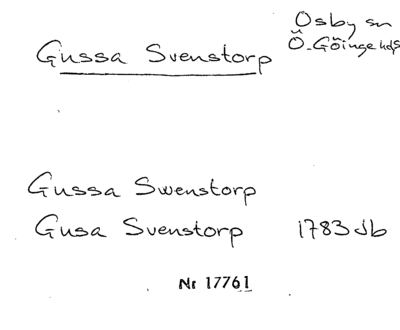 Gussa Svenstorp
Osby sn
Ö. Göinge hds
Gussa Swenstorp
Gusa Svenstorp 1783 Jb
Nr 17761